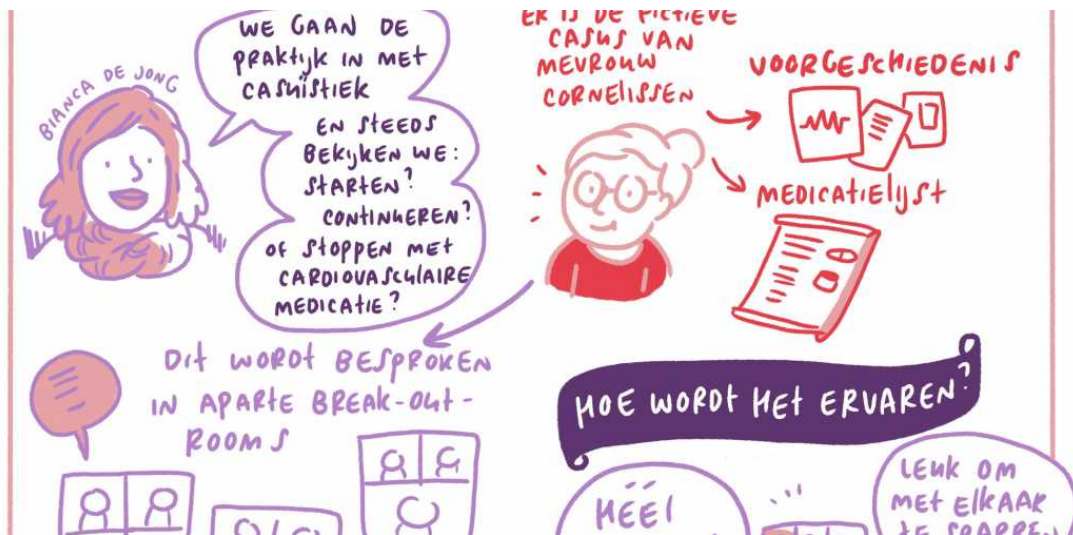 BIANCA DE JONG
WE GAAN DE
PRAKTIJK IN MET
CASUÏSTIEK
EN STEEDS
BEKIJKEN WE:
STARTEN?
CONTINUEREN?
OF STOPPEN MET
CARDIOVASCULAIRE
MEDICATIE?
ER IS DE FICTIEVE
CASUS VAN
MEVROUW
CORNELISSEN
VOORGESCHIEDENIS
MEDICATIELIJST
DIT WORDT BESPROKEN
IN APARTE BREAK-OUT-
ROOMS
HOE WORDT HET ERVAREN?
HÉÉL
LEUK OM
MET ELKAAR
TE SPARREN